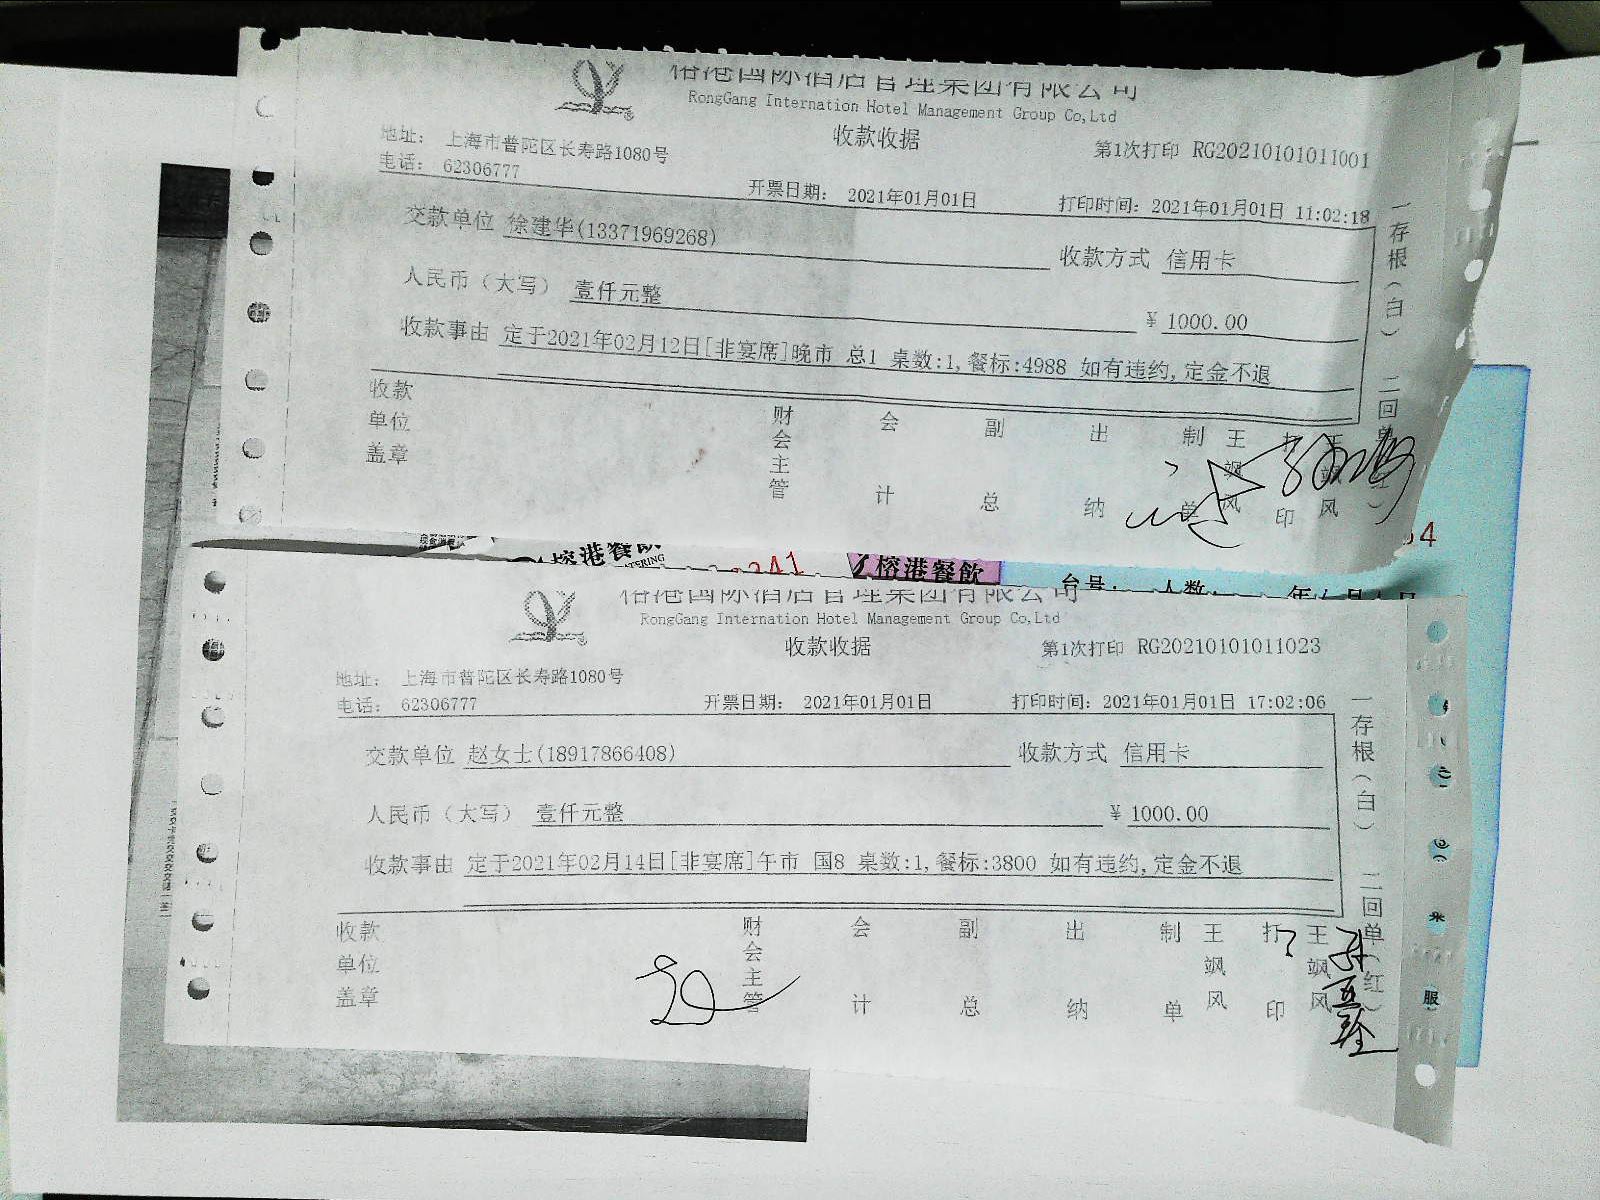 榕港国际酒店管理集团有限公司
RongGang Internation Hotel Management Group Co,Ltd
收款收据
第1次打印 RG20210101011001
地址： 上海市普陀区长寿路1080号
电话： 62306777
开票日期： 2021年01月01日
打印时间：2021年01月01日 11:02:18
交款单位 徐建华(13371969268)
收款方式 信用卡
人民币（大写） 壹仟元整
￥ 1000.00
收款事由 定于2021年02月12日[非宴席]晚市 总1 桌数:1,餐标:4988 如有违约,定金不退
一存根（白） 二回单
收款单位盖章
财会主管
会计
副总
出纳
制单
王飒风
打印
王飒风
榕港餐饮
241
榕港餐飲
台号： 人数：
54
榕港国际酒店管理集团有限公司
RongGang Internation Hotel Management Group Co,Ltd
收款收据
第1次打印 RG20210101011023
地址： 上海市普陀区长寿路1080号
电话： 62306777
开票日期： 2021年01月01日
打印时间：2021年01月01日 17:02:06
交款单位 赵女士(18917866408)
收款方式 信用卡
人民币（大写） 壹仟元整
￥ 1000.00
收款事由 定于2021年02月14日[非宴席]午市 国8 桌数:1,餐标:3800 如有违约,定金不退
一存根（白） 二回单（红）
收款单位盖章
财会主管
会计
副总
出纳
制单
王飒风
打印
王飒风
服